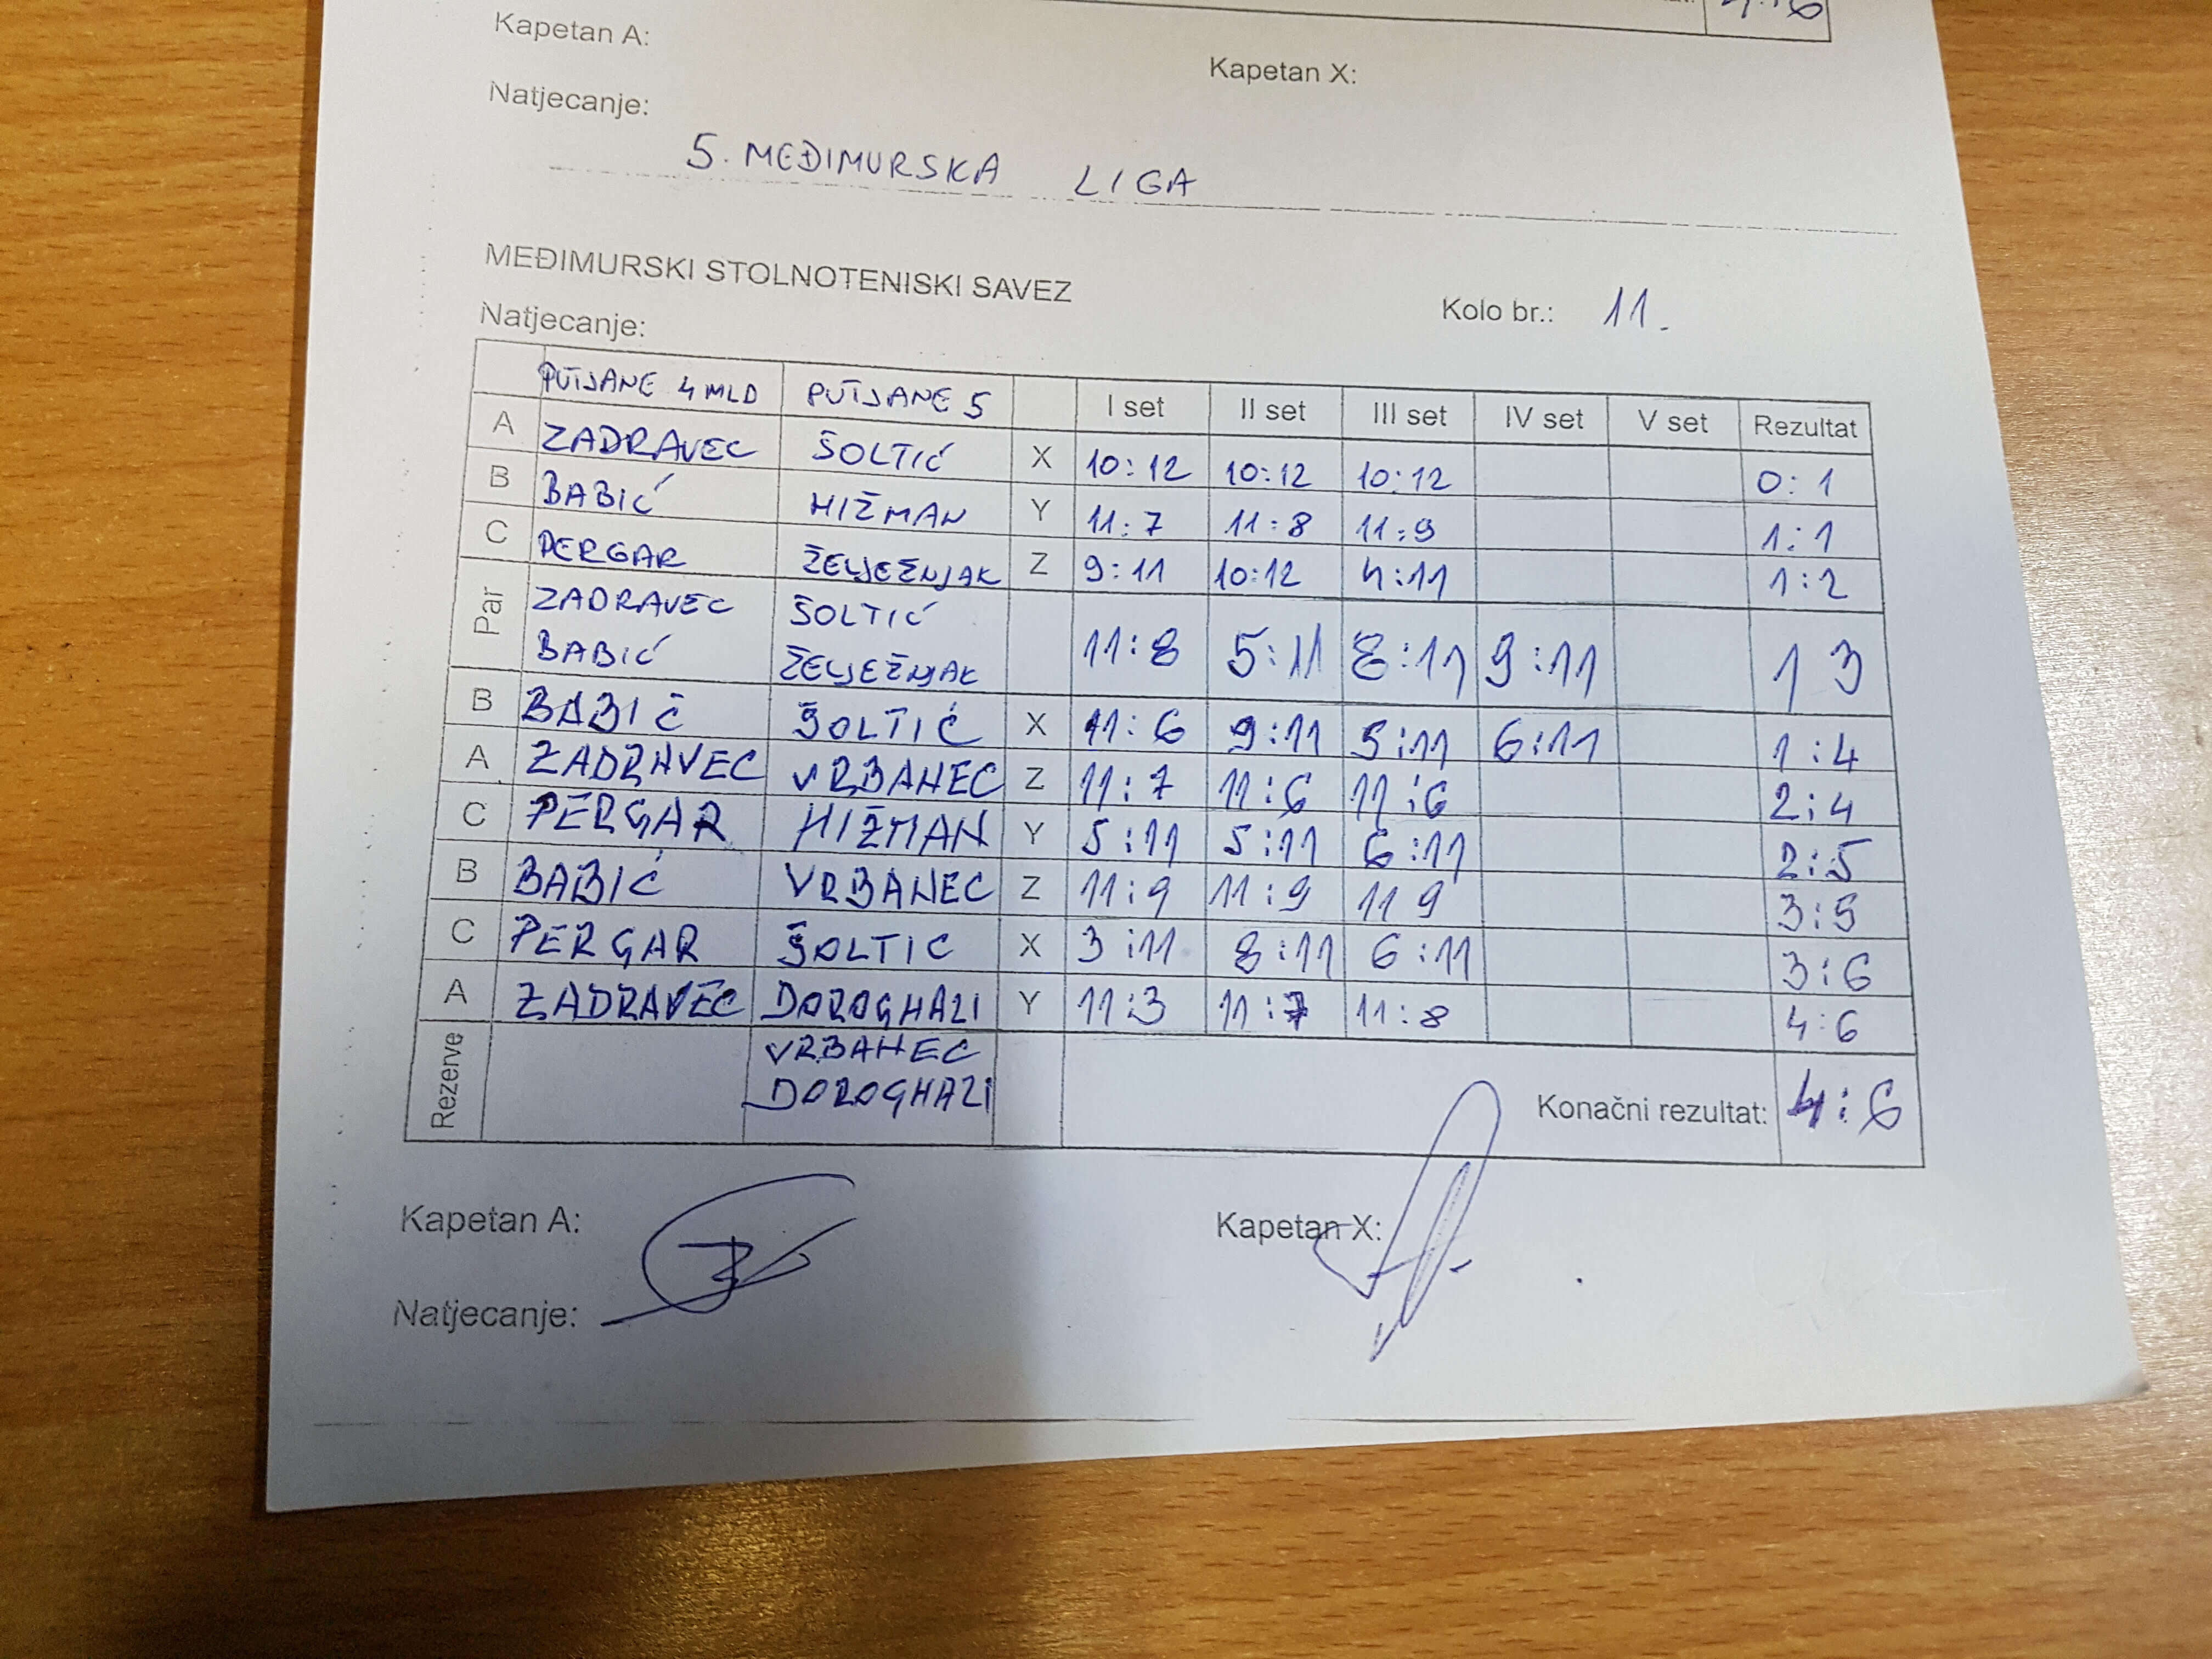 4:6
Kapetan A:
Kapetan X:
Natjecanje:
5. MEĐIMURSKA LIGA
MEĐIMURSKI STOLNOTENISKI SAVEZ
Kolo br.: 11.
Natjecanje:
PUTJANE 4 MLD PUTJANE 5 I set II set III set IV set V set Rezultat
A ZADRAVEC ŠOLTIĆ X 10:12 10:12 10:12 0:1
B BABIĆ HIŽMAN Y 11:7 11:8 11:9 1:1
C PERGAR ŽELJEŽNJAK Z 9:11 10:12 4:11 1:2
Par ZADRAVEC ŠOLTIĆ 11:8 5:11 8:11 9:11 1 3
BABIĆ ŽELJEŽNJAK
B BABIĆ ŠOLTIĆ X 11:6 9:11 5:11 6:11 1:4
A ZADRAVEC VRBANEC Z 11:7 11:6 11:6 2:4
C PERGAR HIŽMAN Y 5:11 5:11 6:11 2:5
B BABIĆ VRBANEC Z 11:9 11:9 11 9 3:5
C PERGAR ŠOLTIC X 3:11 8:11 6:11 3:6
A ZADRAVEC DOROGHAZI Y 11:3 11:7 11:8 4:6
Rezerve VRBANEC
DOROGHAZI
Konačni rezultat: 4:6
Kapetan A:
Kapetan X:
Natjecanje: